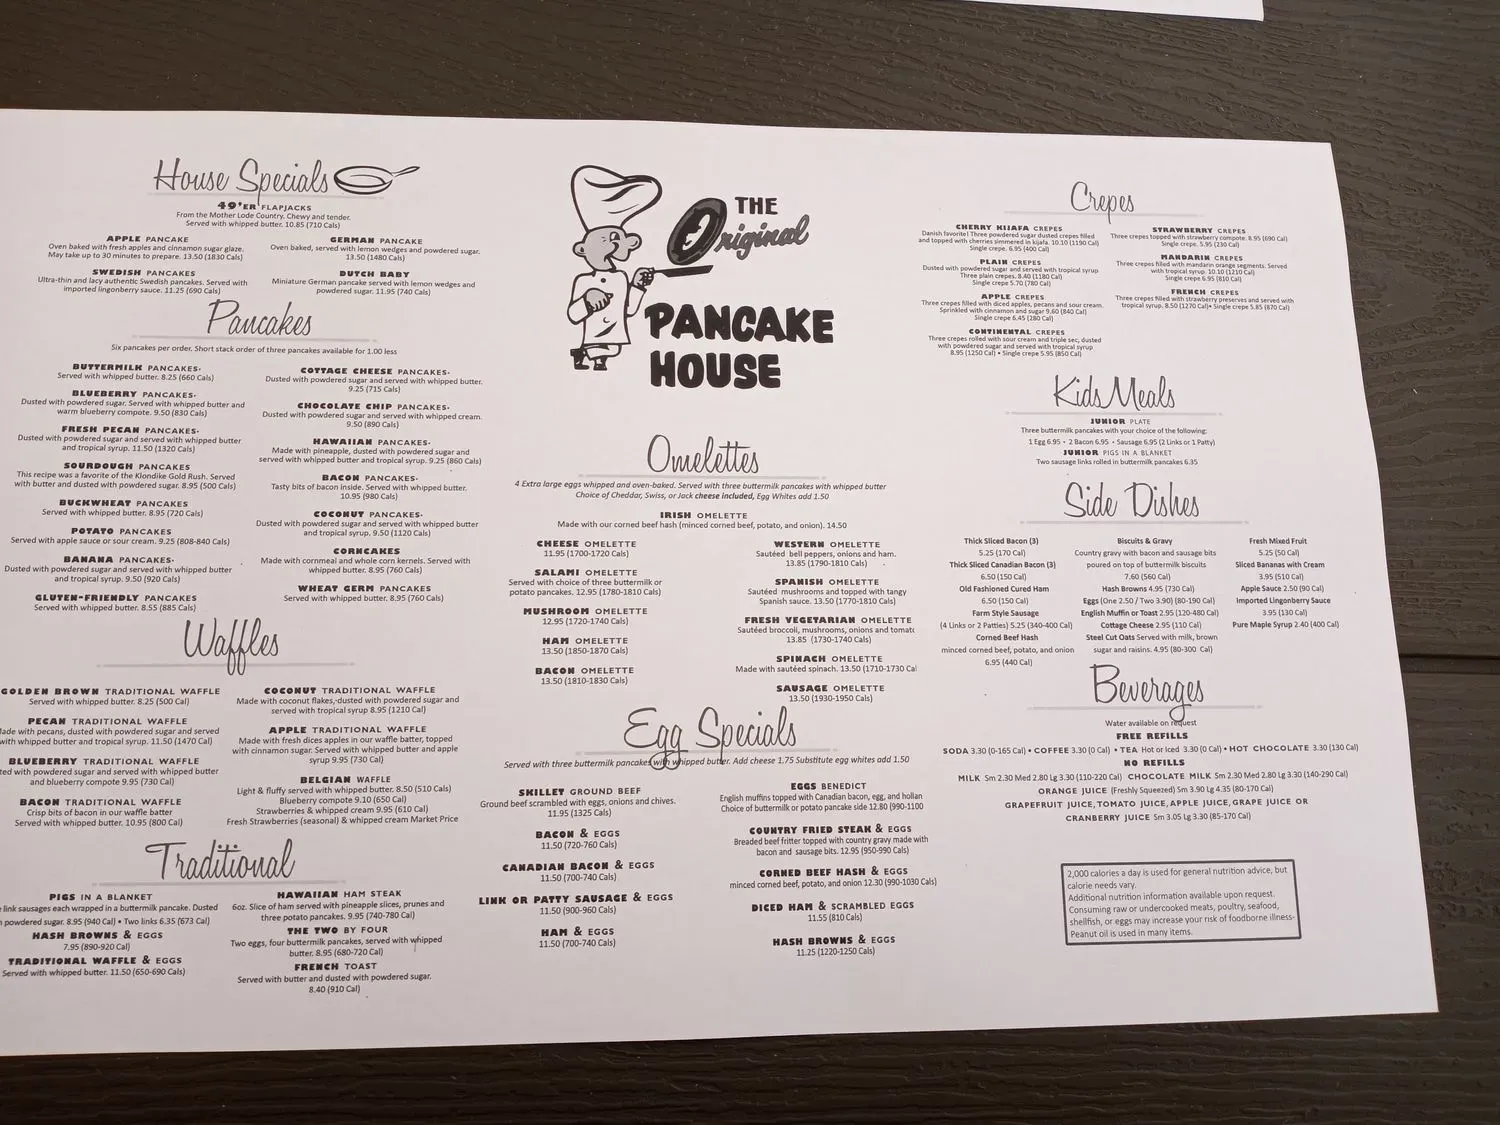 House Specials
49'ER FLAPJACKS
From the Mother Lode Country. Chewy and tender.
Served with whipped butter. 10.85 (710 Cals)
APPLE PANCAKE
Oven baked with fresh apples and cinnamon sugar glaze.
May take up to 30 minutes to prepare. 13.50 (1830 Cals)
SWEDISH PANCAKES
Ultra-thin and lacy authentic Swedish pancakes. Served with
imported lingonberry sauce. 11.25 (690 Cals)
GERMAN PANCAKE
Oven baked, served with lemon wedges and powdered sugar.
13.50 (1480 Cals)
DUTCH BABY
Miniature German pancake served with lemon wedges and
powdered sugar. 11.95 (740 Cals)
Pancakes
Six pancakes per order. Short stack order of three pancakes available for 1.00 less
BUTTERMILK PANCAKES·
Served with whipped butter. 8.25 (660 Cals)
BLUEBERRY PANCAKES·
Dusted with powdered sugar. Served with whipped butter and
warm blueberry compote. 9.50 (830 Cals)
FRESH PECAN PANCAKES·
Dusted with powdered sugar and served with whipped butter
and tropical syrup. 11.50 (1320 Cals)
SOURDOUGH PANCAKES
This recipe was a favorite of the Klondike Gold Rush. Served
with butter and dusted with powdered sugar. 8.95 (500 Cals)
BUCKWHEAT PANCAKES
Served with whipped butter. 8.95 (720 Cals)
POTATO PANCAKES
Served with apple sauce or sour cream. 9.25 (808-840 Cals)
BANANA PANCAKES·
Dusted with powdered sugar and served with whipped butter
and tropical syrup. 9.50 (920 Cals)
GLUTEN-FRIENDLY PANCAKES
Served with whipped butter. 8.55 (885 Cals)
COTTAGE CHEESE PANCAKES·
Dusted with powdered sugar and served with whipped butter.
9.25 (715 Cals)
CHOCOLATE CHIP PANCAKES·
Dusted with powdered sugar and served with whipped cream.
9.50 (890 Cals)
HAWAIIAN PANCAKES·
Made with pineapple, dusted with powdered sugar and
served with whipped butter and tropical syrup. 9.25 (860 Cals)
BACON PANCAKES·
Tasty bits of bacon inside. Served with whipped butter.
10.95 (980 Cals)
COCONUT PANCAKES·
Dusted with powdered sugar and served with whipped butter
and tropical syrup. 9.50 (1120 Cals)
CORNCAKES
Made with cornmeal and whole corn kernels. Served with
whipped butter. 8.95 (760 Cals)
WHEAT GERM PANCAKES
Served with whipped butter. 8.95 (760 Cals)
Waffles
GOLDEN BROWN TRADITIONAL WAFFLE
Served with whipped butter. 8.25 (500 Cal)
PECAN TRADITIONAL WAFFLE
ade with pecans, dusted with powdered sugar and served
with whipped butter and tropical syrup. 11.50 (1470 Cal)
BLUEBERRY TRADITIONAL WAFFLE
ted with powdered sugar and served with whipped butter
and blueberry compote 9.95 (730 Cal)
BACON TRADITIONAL WAFFLE
Crisp bits of bacon in our waffle batter
Served with whipped butter. 10.95 (800 Cal)
COCONUT TRADITIONAL WAFFLE
Made with coconut flakes, dusted with powdered sugar and
served with tropical syrup 8.95 (1210 Cal)
APPLE TRADITIONAL WAFFLE
Made with fresh dices apples in our waffle batter, topped
with cinnamon sugar. Served with whipped butter and apple
syrup 9.95 (730 Cal)
BELGIAN WAFFLE
Light & fluffy served with whipped butter. 8.50 (510 Cals)
Blueberry compote 9.10 (650 Cal)
Strawberries & whipped cream 9.95 (610 Cal)
Fresh Strawberries (seasonal) & whipped cream Market Price
Traditional
PIGS IN A BLANKET
link sausages each wrapped in a buttermilk pancake. Dusted
powdered sugar. 8.95 (940 Cal) • Two links 6.35 (673 Cal)
HASH BROWNS & EGGS
7.95 (890-920 Cal)
TRADITIONAL WAFFLE & EGGS
Served with whipped butter. 11.50 (650-690 Cals)
HAWAIIAN HAM STEAK
6oz. Slice of ham served with pineapple slices, prunes and
three potato pancakes. 9.95 (740-780 Cal)
THE TWO BY FOUR
Two eggs, four buttermilk pancakes, served with whipped
butter. 8.95 (680-720 Cal)
FRENCH TOAST
Served with butter and dusted with powdered sugar.
8.40 (910 Cal)
THE
Original
PANCAKE
HOUSE
Omelettes
4 Extra large eggs whipped and oven-baked. Served with three buttermilk pancakes with whipped butter
Choice of Cheddar, Swiss, or Jack cheese included, Egg Whites add 1.50
IRISH OMELETTE
Made with our corned beef hash (minced corned beef, potato, and onion). 14.50
CHEESE OMELETTE
11.95 (1700-1720 Cals)
SALAMI OMELETTE
Served with choice of three buttermilk or
potato pancakes. 12.95 (1780-1810 Cals)
MUSHROOM OMELETTE
12.95 (1720-1740 Cals)
HAM OMELETTE
13.50 (1850-1870 Cals)
BACON OMELETTE
13.50 (1810-1830 Cals)
WESTERN OMELETTE
Sautéed bell peppers, onions and ham.
13.85 (1790-1810 Cals)
SPANISH OMELETTE
Sautéed mushrooms and topped with tangy
Spanish sauce. 13.50 (1770-1810 Cals)
FRESH VEGETARIAN OMELETTE
Sautéed broccoli, mushrooms, onions and tomatc
13.85 (1730-1740 Cals)
SPINACH OMELETTE
Made with sautéed spinach. 13.50 (1710-1730 Cal
SAUSAGE OMELETTE
13.50 (1930-1950 Cals)
Egg Specials
Served with three buttermilk pancakes with whipped butter. Add cheese 1.75 Substitute egg whites add 1.50
SKILLET GROUND BEEF
Ground beef scrambled with eggs, onions and chives.
11.95 (1325 Cals)
BACON & EGGS
11.50 (720-760 Cal)
CANADIAN BACON & EGGS
11.50 (700-740 Cals)
LINK OR PATTY SAUSAGE & EGGS
11.50 (900-960 Cals)
HAM & EGGS
11.50 (700-740 Cals)
EGGS BENEDICT
English muffins topped with Canadian bacon, egg, and hollan
Choice of buttermilk or potato pancake side 12.80 (990-1100
COUNTRY FRIED STEAK & EGGS
Breaded beef fritter topped with country gravy made with
bacon and sausage bits. 12.95 (950-990 Cals)
CORNED BEEF HASH & EGGS
minced corned beef, potato, and onion 12.30 (990-1030 Cals)
DICED HAM & SCRAMBLED EGGS
11.55 (810 Cals)
HASH BROWNS & EGGS
11.25 (1220-1250 Cals)
Crepes
CHERRY KIJAFA CREPES
Danish favorite! Three powdered sugar dusted crepes filled
and topped with cherries simmered in kijafa. 10.10 (1190 Cal)
Single crepe. 6.95 (400 Cal)
PLAIN CREPES
Dusted with powdered sugar and served with tropical syrup
Three plain crepes. 8.40 (1180 Cals)
Single crepe 5.70 (780 Cal)
APPLE CREPES
Three crepes filled with diced apples, pecans and sour cream.
Sprinkled with cinnamon and sugar 9.60 (840 Cal)
Single crepe 6.45 (280 Cal)
CONTINENTAL CREPES
Three crepes rolled with sour cream and triple sec, dusted
with powdered sugar and served with tropical syrup
8.95 (1250 Cal) • Single crepe 5.95 (850 Cal)
STRAWBERRY CREPES
Three crepes topped with strawberry compote. 8.95 (690 Cal)
Single crepe. 5.95 (230 Cal)
MANDARIN CREPES
Three crepes filled with mandarin orange segments. Served
with tropical syrup. 10.10 (1210 Cal)
Single crepe 6.95 (810 Cal)
FRENCH CREPES
Three crepes filled with strawberry preserves and served with
tropical syrup. 8.50 (1270 Cal)• Single crepe 5.85 (870 Cal)
Kids Meals
JUNIOR PLATE
Three buttermilk pancakes with your choice of the following:
1 Egg 6.95 • 2 Bacon 6.95 • Sausage 6.95 (2 Links or 1 Patty)
JUNIOR PIGS IN A BLANKET
Two sausage links rolled in buttermilk pancakes 6.35
Side Dishes
Thick Sliced Bacon (3)
5.25 (170 Cal)
Thick Sliced Canadian Bacon (3)
6.50 (150 Cal)
Old Fashioned Cured Ham
6.50 (150 Cal)
Farm Style Sausage
(4 Links or 2 Patties) 5.25 (340-400 Cal)
Corned Beef Hash
minced corned beef, potato, and onion
6.95 (440 Cal)
Biscuits & Gravy
Country gravy with bacon and sausage bits
poured on top of buttermilk biscuits
7.60 (560 Cal)
Hash Browns 4.95 (730 Cal)
Eggs (One 2.50 / Two 3.90) (80-190 Cal)
English Muffin or Toast 2.95 (120-480 Cal)
Cottage Cheese 2.95 (110 Cal)
Steel Cut Oats Served with milk, brown
sugar and raisins. 4.95 (80-300 Cal)
Fresh Mixed Fruit
5.25 (50 Cal)
Sliced Bananas with Cream
3.95 (510 Cal)
Apple Sauce 2.50 (90 Cal)
Imported Lingonberry Sauce
3.95 (130 Cal)
Pure Maple Syrup 2.40 (400 Cal)
Beverages
Water available on request
FREE REFILLS
SODA 3.30 (0-165 Cal) • COFFEE 3.30 (0 Cal) • TEA Hot or Iced 3.30 (0 Cal) • HOT CHOCOLATE 3.30 (130 Cal)
NO REFILLS
MILK Sm 2.30 Med 2.80 Lg 3.30 (110-220 Cal) CHOCOLATE MILK Sm 2.30 Med 2.80 Lg 3.30 (140-290 Cal)
ORANGE JUICE (Freshly Squeezed) Sm 3.90 Lg 4.35 (80-170 Cal)
GRAPEFRUIT JUICE, TOMATO JUICE, APPLE JUICE, GRAPE JUICE OR
CRANBERRY JUICE Sm 3.05 Lg 3.30 (85-170 Cal)
2,000 calories a day is used for general nutrition advice, but
calorie needs vary.
Additional nutrition information available upon request.
Consuming raw or undercooked meats, poultry, seafood,
shellfish, or eggs may increase your risk of foodborne illness-
Peanut oil is used in many items.